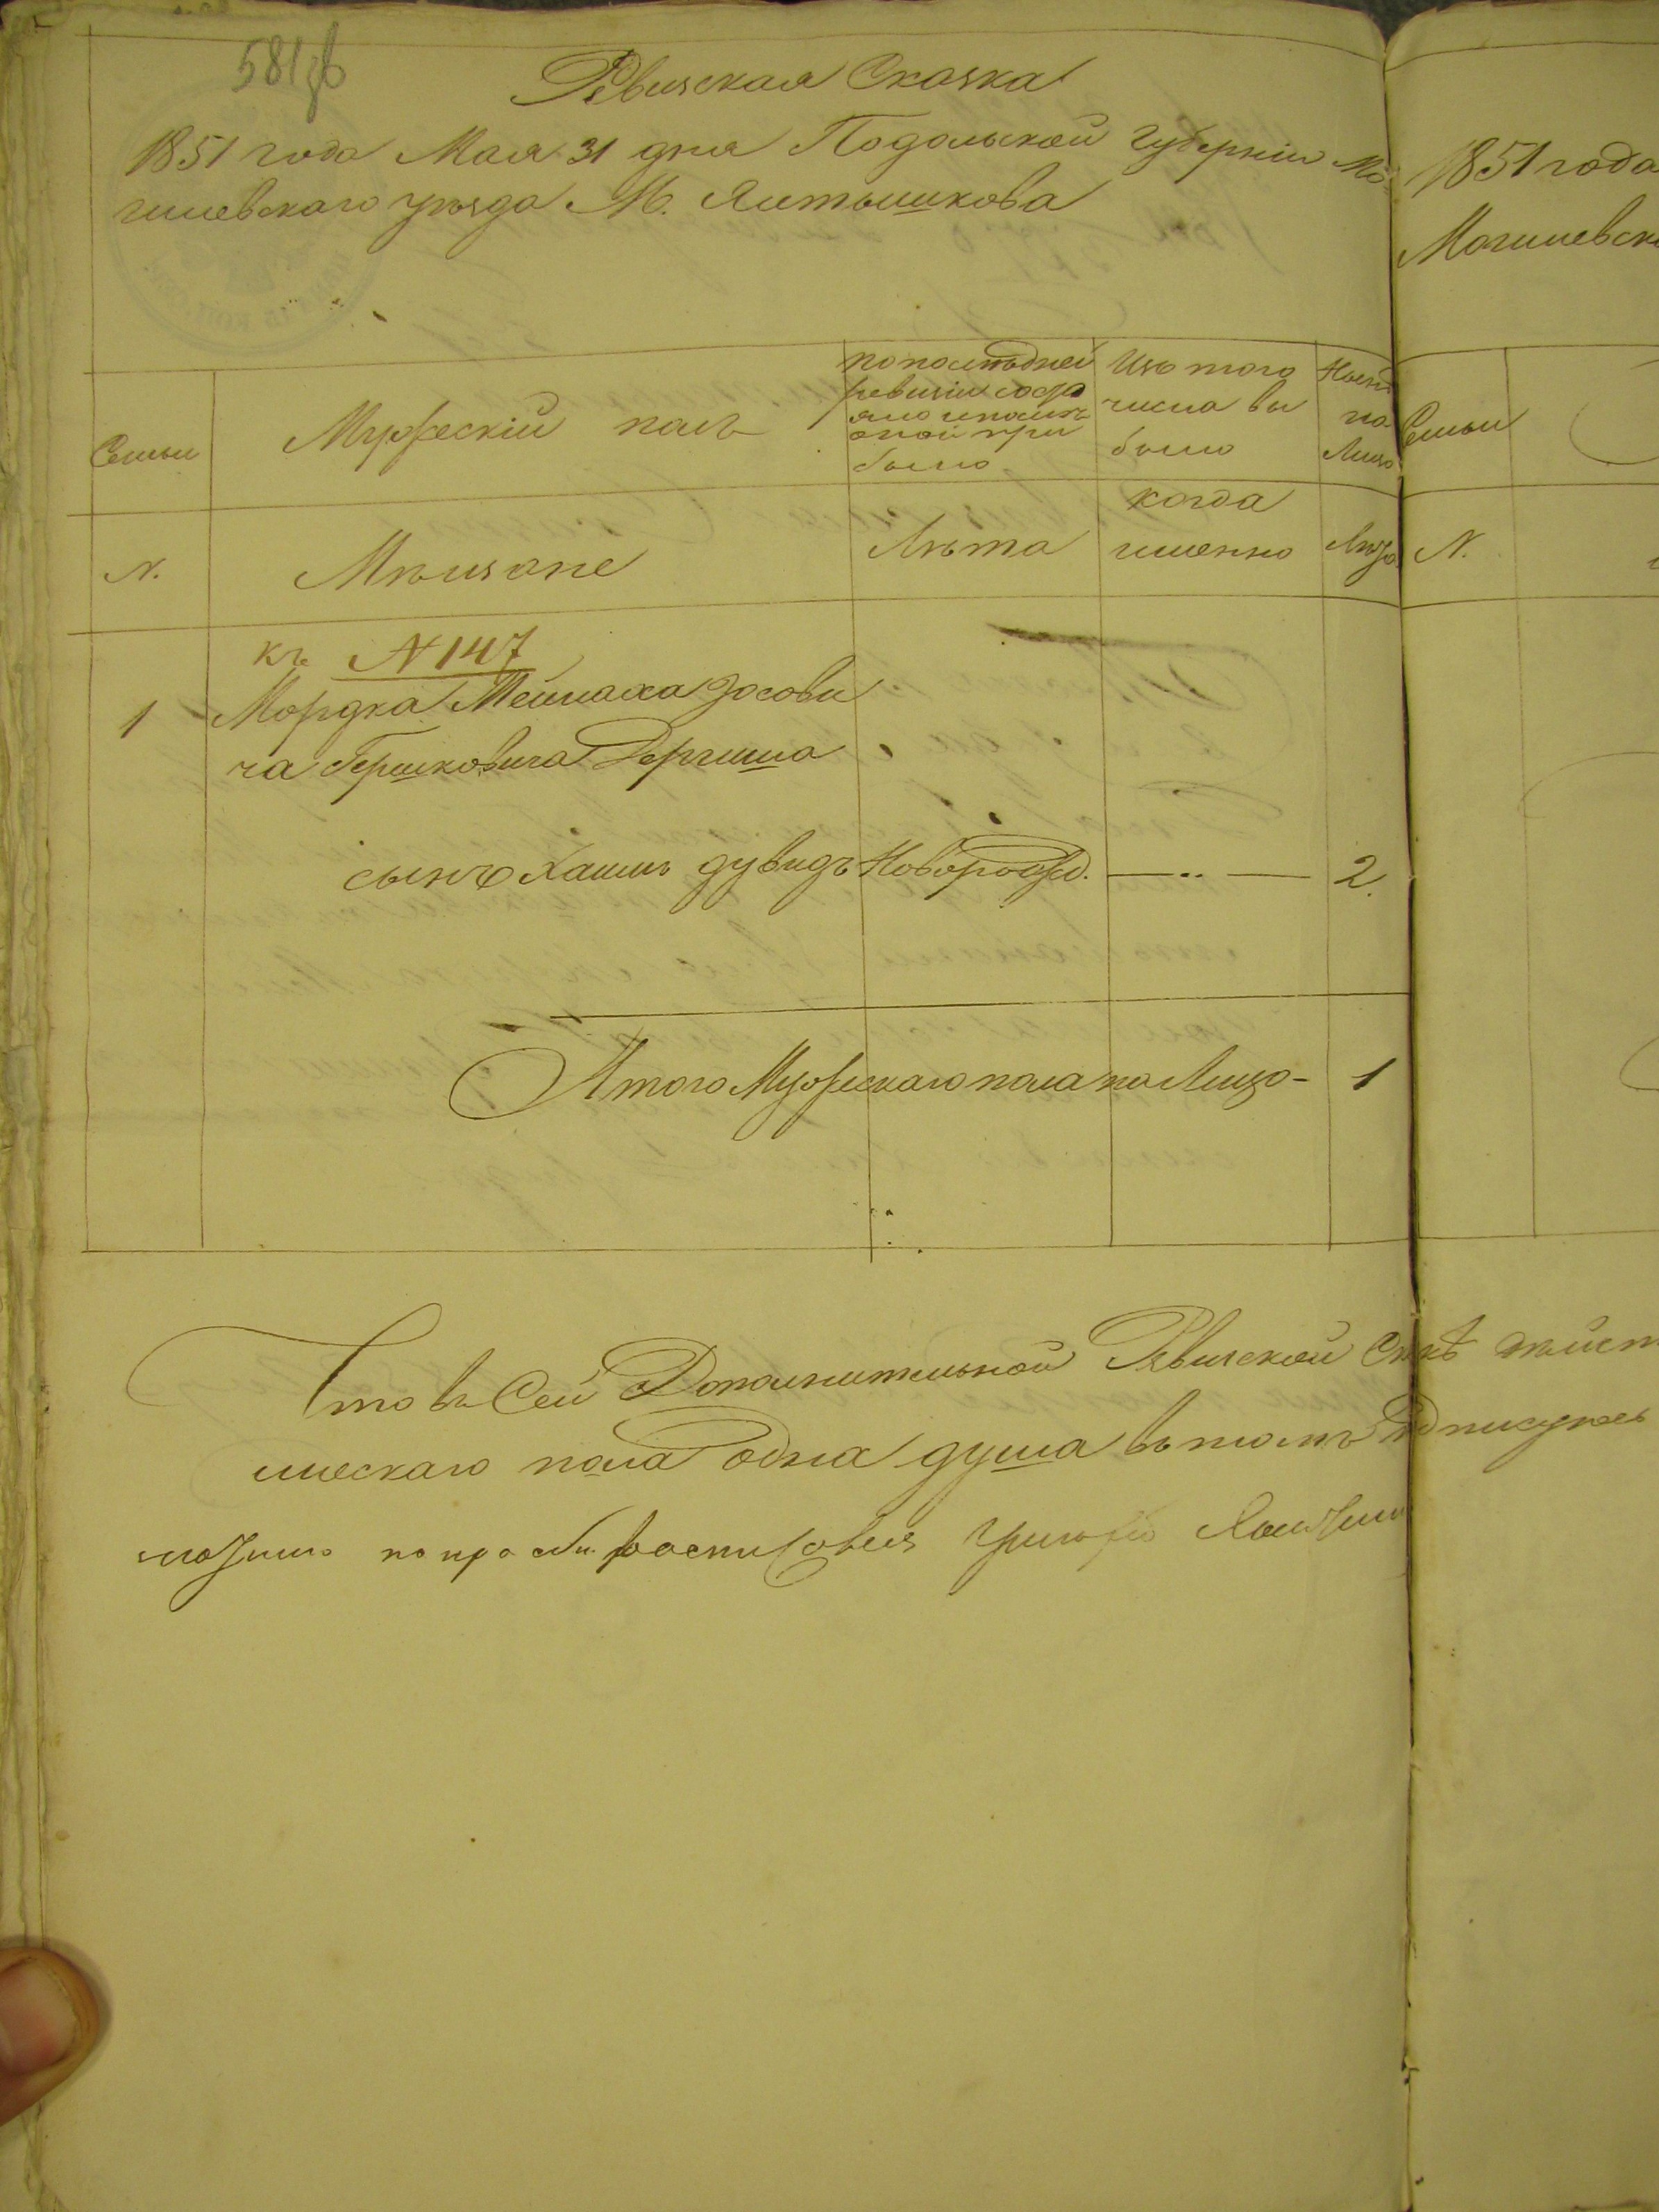 581 об
Ревизская Сказка
1851 года Мая 31 дня Подольской Губерніи Мо
гилевскаго уѣзда М. Ялтышкова
Семьи
Мужескій полъ
по послѣдней
ревизіи состо
яло и послѣ
оной при
было
Изъ того
числа вы
было
Нынѣ
на
Лицо
N.
Мѣщане
Лѣта
когда
именно
Лѣта
къ N 147
1
Мордка Мейлаха Іосови
ча Гершковича
сынъ Хаимъ дувидъ
Новорожд.
— „ —
2.
Итого Мужескаго пола на Лицо -
1
Что въ Сей Дополнительной Ревизской
мужескаго пола одна душа въ томъ подписуюсь
по просьби росписовался
1851 года
Могилевск
Семьи
N.